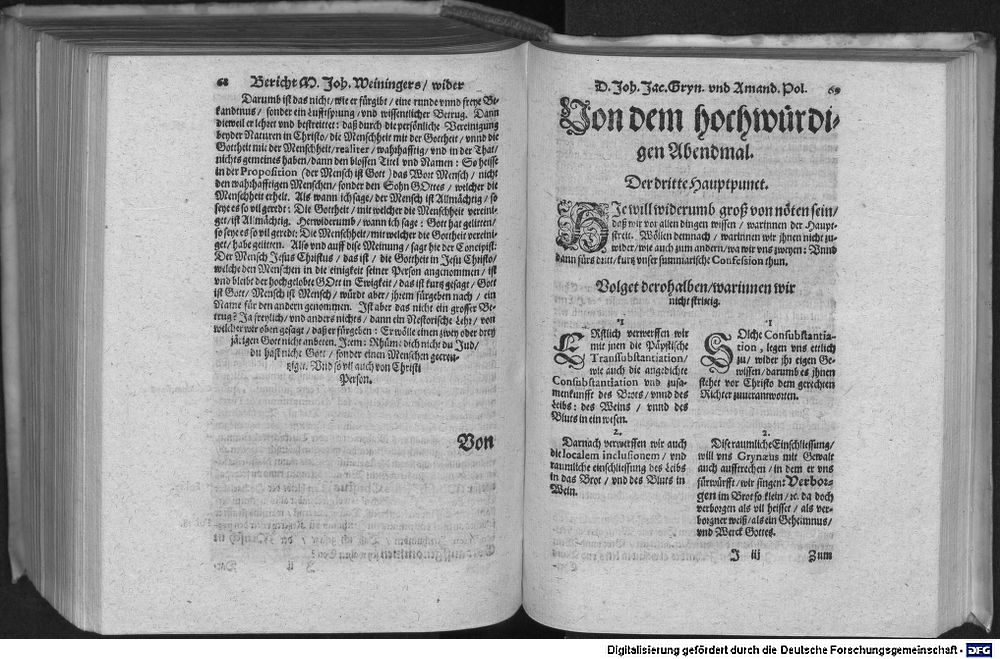 68 Bericht M. Joh. Weiningers / wider
Darumb ist das nicht / wie er fürgibt / eine runde vnnd freye Be-
kandtnus / sonder ein Lufftsprung / vnd wissenlicher Betrug. Dann
dieweil er lehret vnd bestreittet: daß durch die persönliche Vereinigung
beyder Naturen in Christo / die Menschheit mit der Gottheit / vnnd die
Gottheit mit der Menschheit / realiter / wahrhafftig / vnd in der That /
nichts gemeines haben / dann den blossen Titel vnd Namen: So heisse
in der Proposition (der Mensch ist Gott) das Wort Mensch / nicht
den wahrhafftigen Menschen / sonder den Sohn GOttes / welcher die
Menschheit erhelt. Als wann ich sage / der Mensch ist Allmächtig / so
seye es so vil geredt: Die Gottheit / mit welcher die Menschheit vereini-
get / ist Allmächtig. Herwiderumb / wann ich sage: Gott hat gelitten /
so seye es so vil geredt: Die Menschheit / mit welcher die Gottheit vereini-
get / habe gelitten. Also vnd auff dise Meinung / sagt hie der Concipist:
Der Mensch Jesus Christus / das ist / die Gottheit in Jesu Christo /
welche den Menschen in die einigkeit seiner Person angenommen / ist
vnd bleibt der hochgelobte GOtt in Ewigkeit / das ist kurtz gesagt / Gott
ist Gott / Mensch ist Mensch / würdt aber / ihrem fürgeben nach / ein
Name für den andern genommen. Ist aber das nicht ein grosser Be-
trug? Ja freylich / vnd anders nichts / dann ein Nestorische Lehr / von
welcher wir oben gesagt / daß er fürgeben: Er wölle einen zwey oder drey
järigen Gott nicht anbeten. Item: Rhüm dich nicht du Jud /
du hast nicht Gott / sonder einen Menschen gecreu-
tziget. Vnd so vil auch von Christi
Person.
Von
D. Joh. Jac. Gryn. vnd Amand. Pol. 69
Von dem hochwürdi-
gen Abendmal.
Der dritte Hauptpunct.
HJe will widerumb groß von nöten sein /
deß wir vor allen dingen wissen / warinnen der Haupt-
streit. Wöllen demnach / warinnen wir jhnen nicht zu-
wider / wie auch zum andern / wa wir vns zweyen: Vnnd
dann fürs dritt / kurtz vnser summarische Confession thun.
Volget derohalben / warinnen wir
nicht strittig.
1
ERstlich verwerffen wir
mit jnen die Päpstische
Transsubstantiation /
wie auch die angedichte
Consubstantiation vnd zusa-
menkunfft des Brots / vnnd des
Leibs: des Weins / vnnd des
Bluts in ein wesen.
2.
Darnach verwerffen wir auch
die localem inclusionem / vnd
raumliche einschliessung des Leibs
in das Brot / vnd des Bluts in
Wein.
1
SOlche Consubstantia-
tion, legen vns ettlich
zu / wider jhr eigen Ge-
wissen / darumb es jhnen
stehet vor Christo dem gerechten
Richter zuuerantworten.
2.
Dise raumliche Einschliessung /
will vns Grynæus mit Gewalt
auch aufftrechen / in dem er vns
fürwürfft / wir singen: Verbor-
gen im Brot so klein / rc. da doch
verborgen als vil heisset / als ver-
borgner weiß / als ein Geheimnus /
vnd Werck Gottes.
J iij Zum
Digitalisierung gefördert durch die Deutsche Forschungsgemeinschaft - DFG